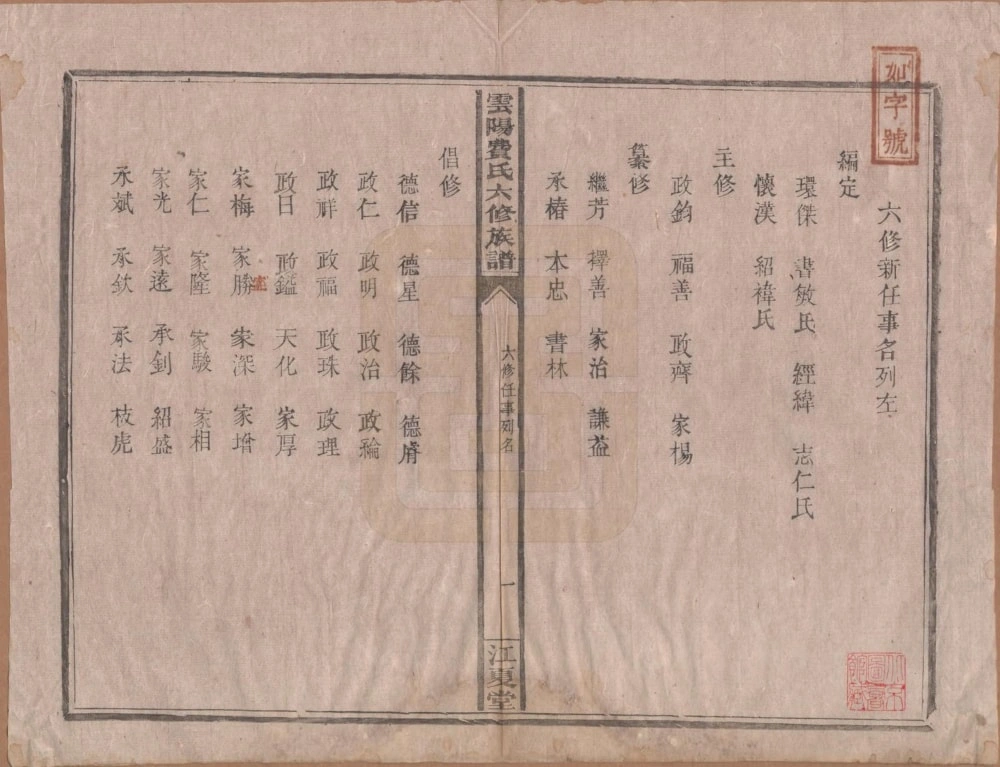 如字號
六修新任事名列左
編定
環傑 書敏氏 經緯 志仁氏
懷漢 紹褘氏
主修
政鈞 福善 政齊 家楊
纂修
繼芳 擇善 家治 謙益
承椿 本忠 書林
雲陽費氏六修族譜
六修任事列名
一
江夏堂
倡修
德信 德星 德餘 德膺
政仁 政明 政治 政綸
政祥 政福 政珠 政理
政日 政鎰 天化 家厚
家梅 家勝 家深 家增
家仁 家隆 家駿 家相
家光 家遠 承釗 紹盛
承斌 承欽 承法 枝虎